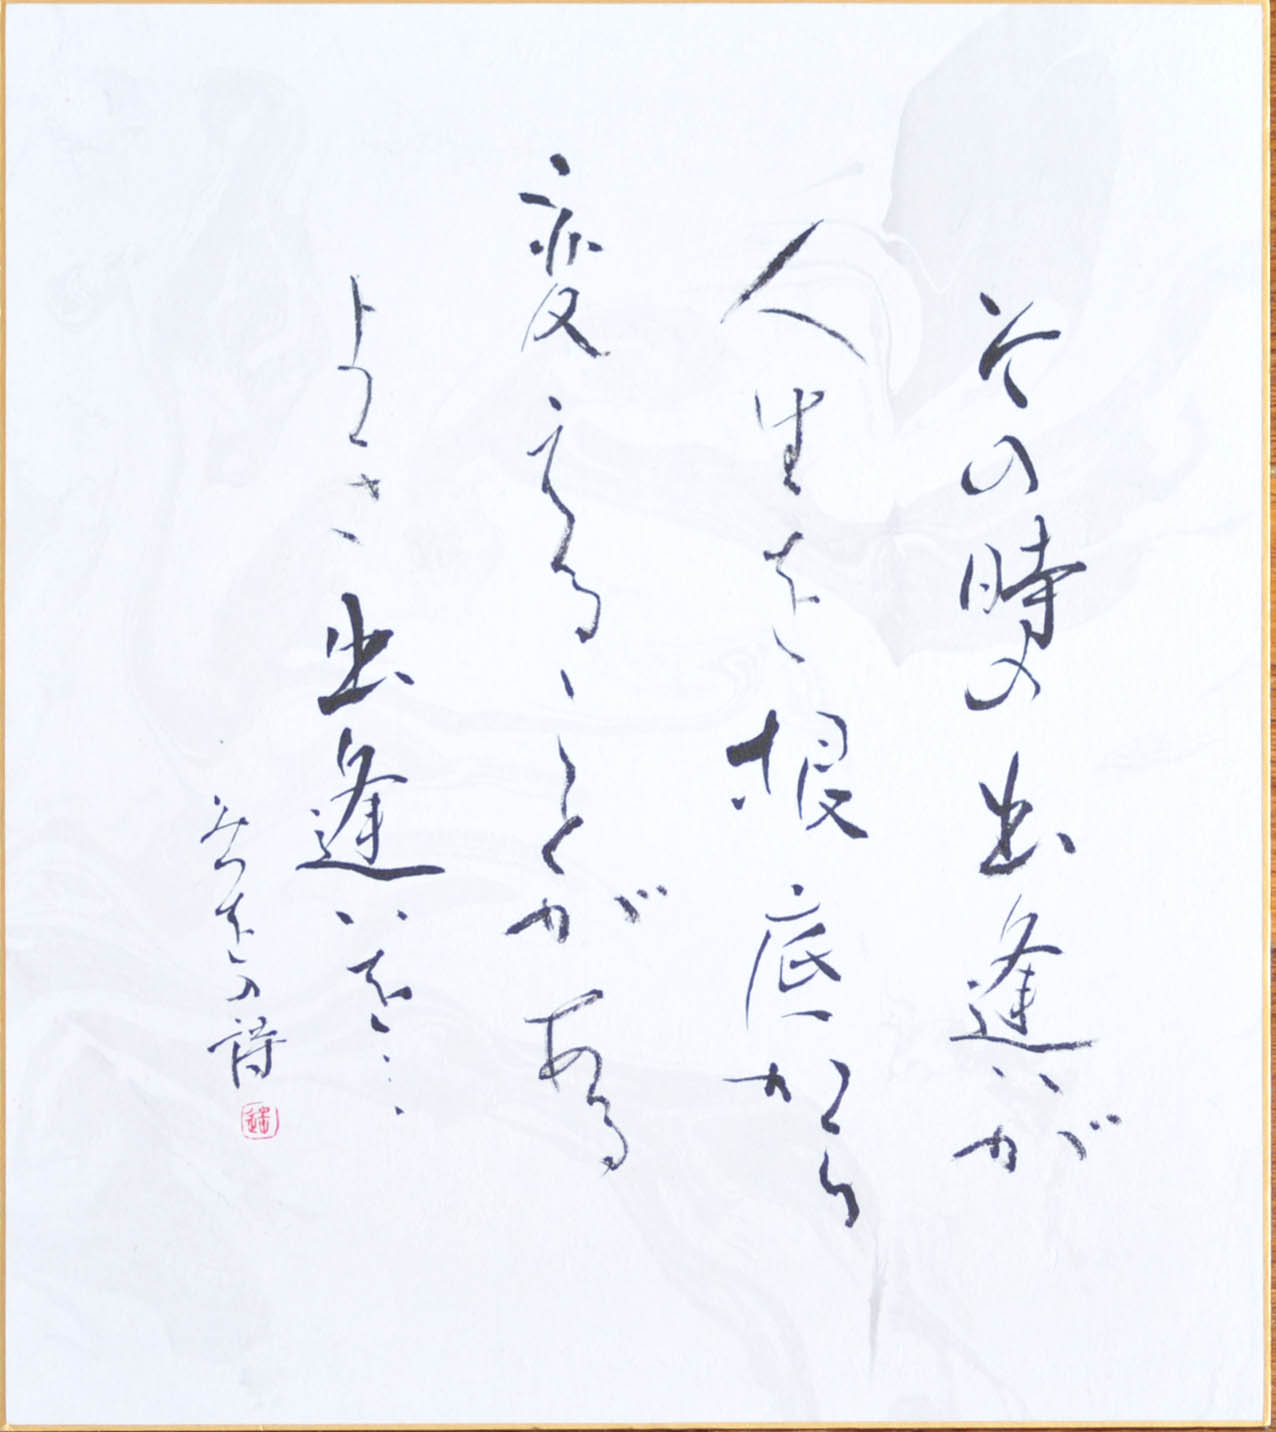 その時の出逢いが
人生を根底から
変えることがある
よき出逢いを…
みつをの詩